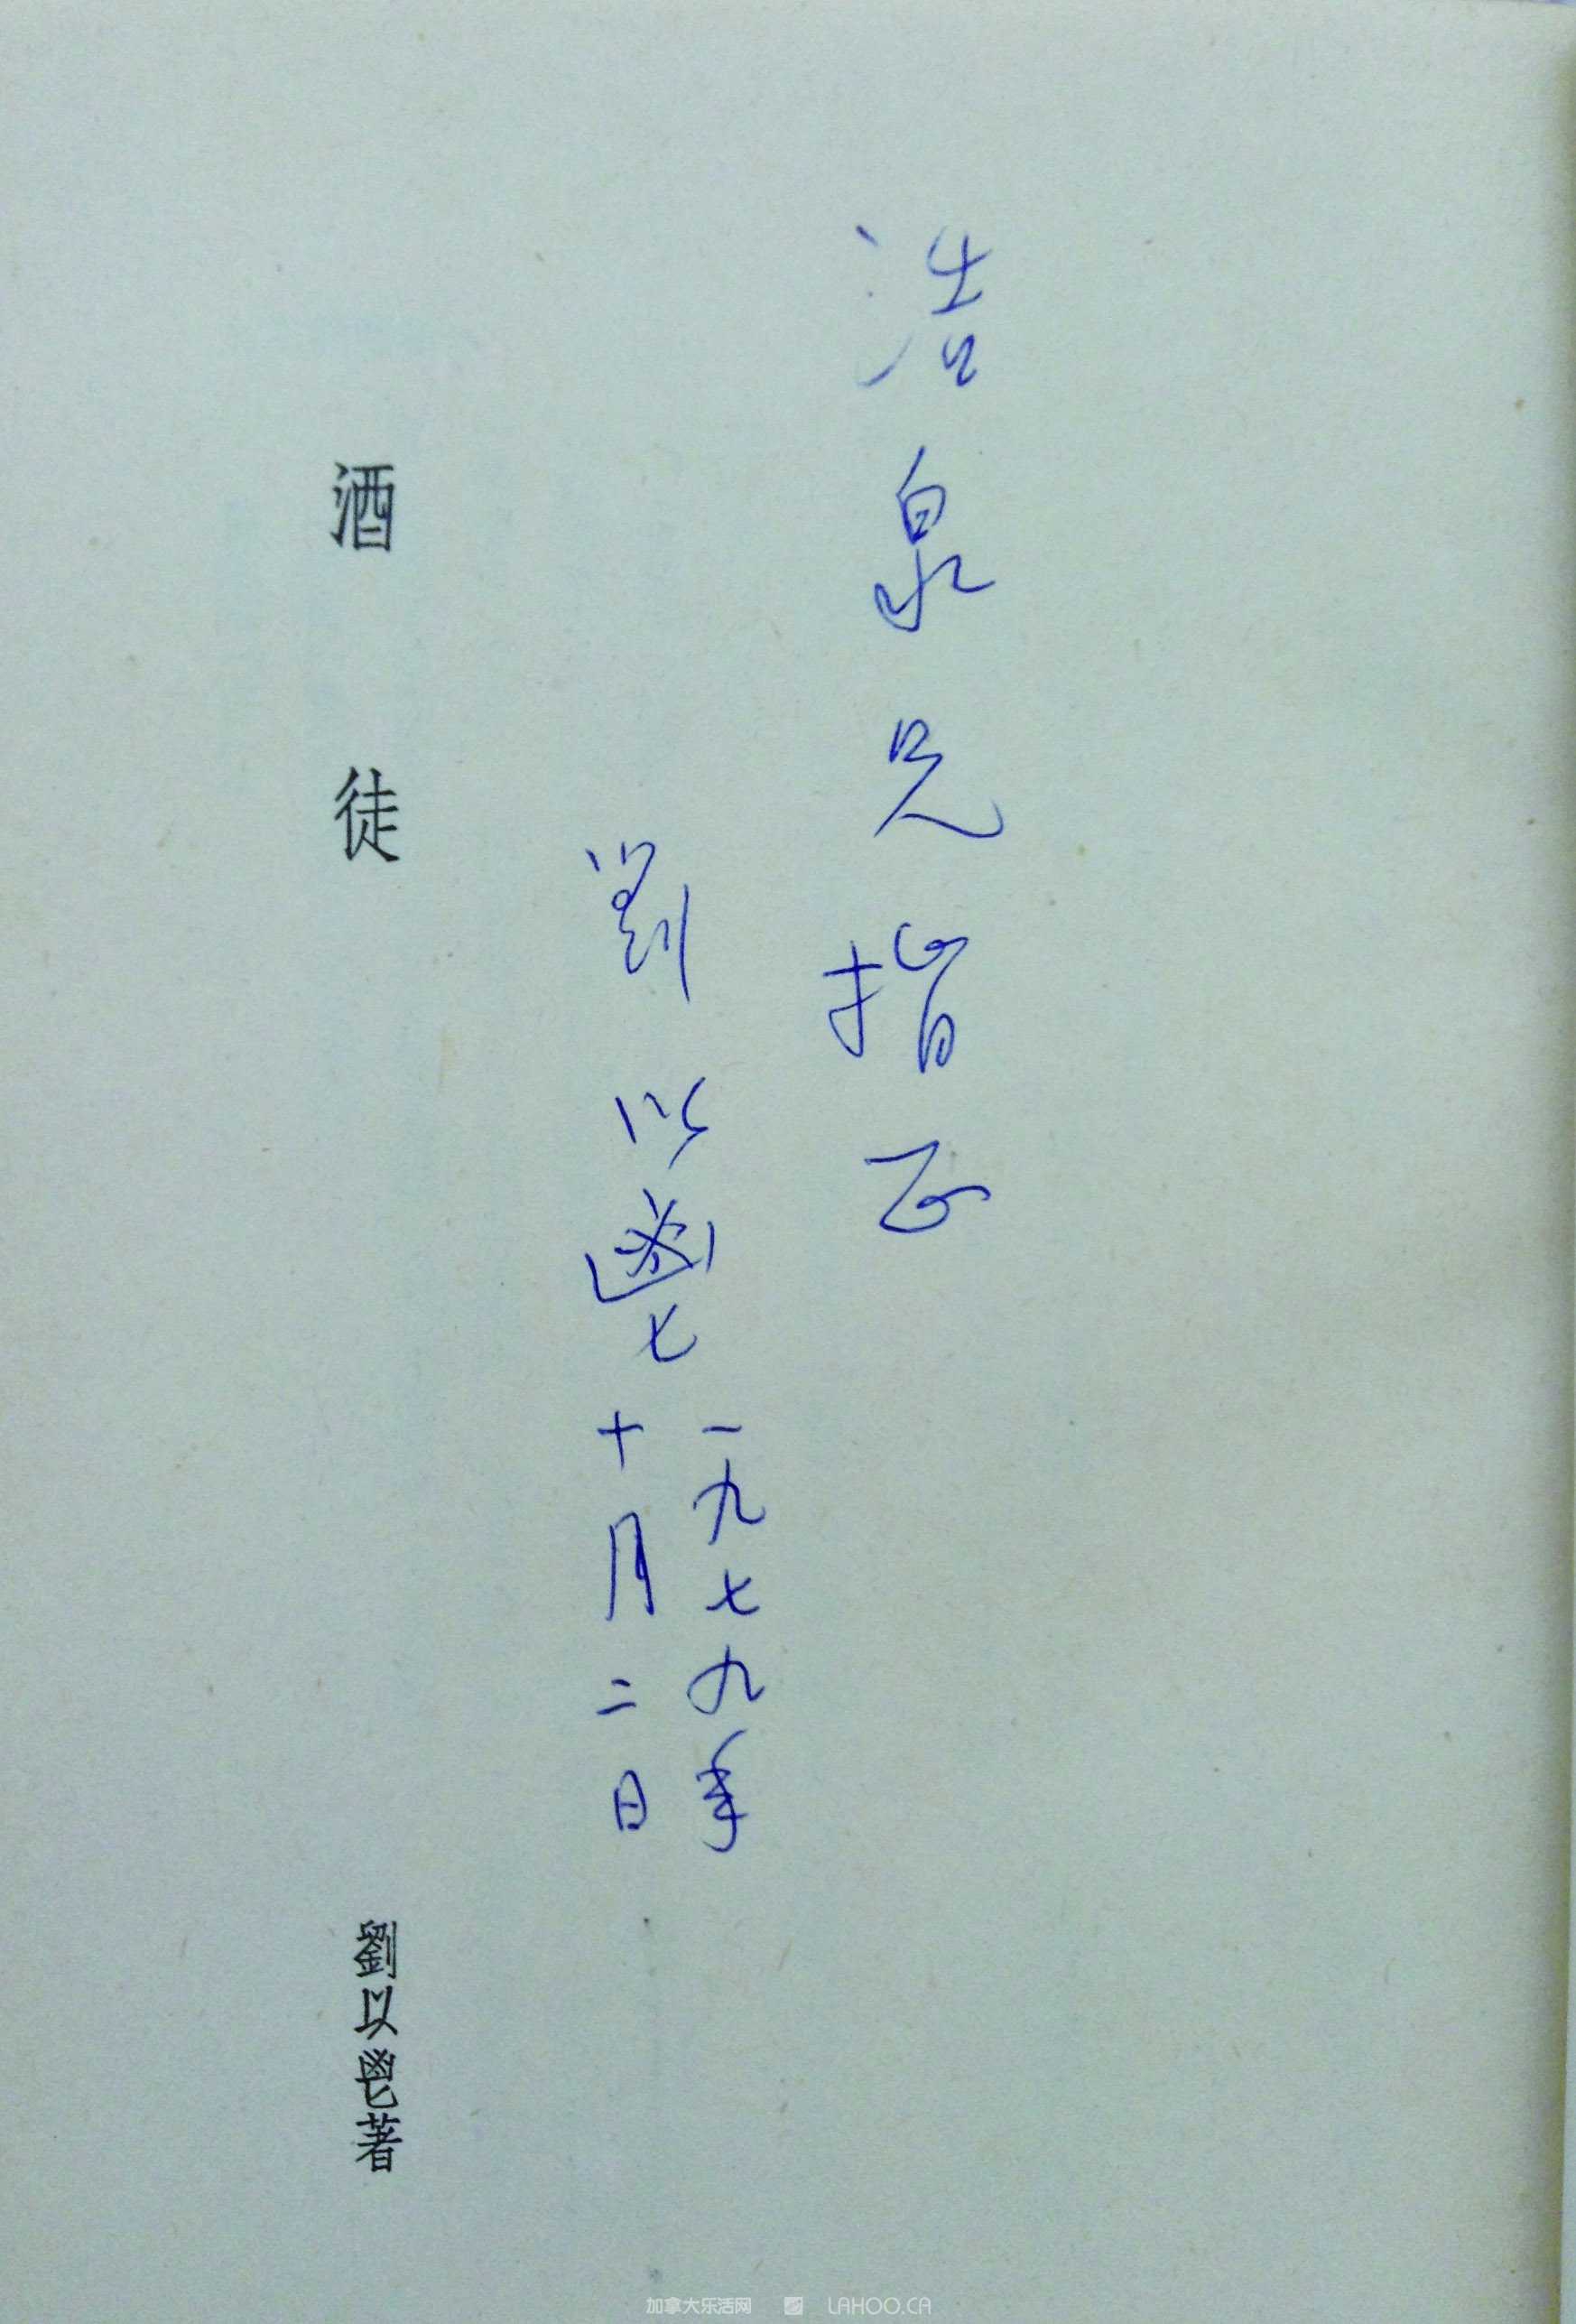 浩泉兄指正
劉以鬯
一九七九年
十月二日
酒徒
劉以鬯著
加拿大乐活网 LAHOO.CA